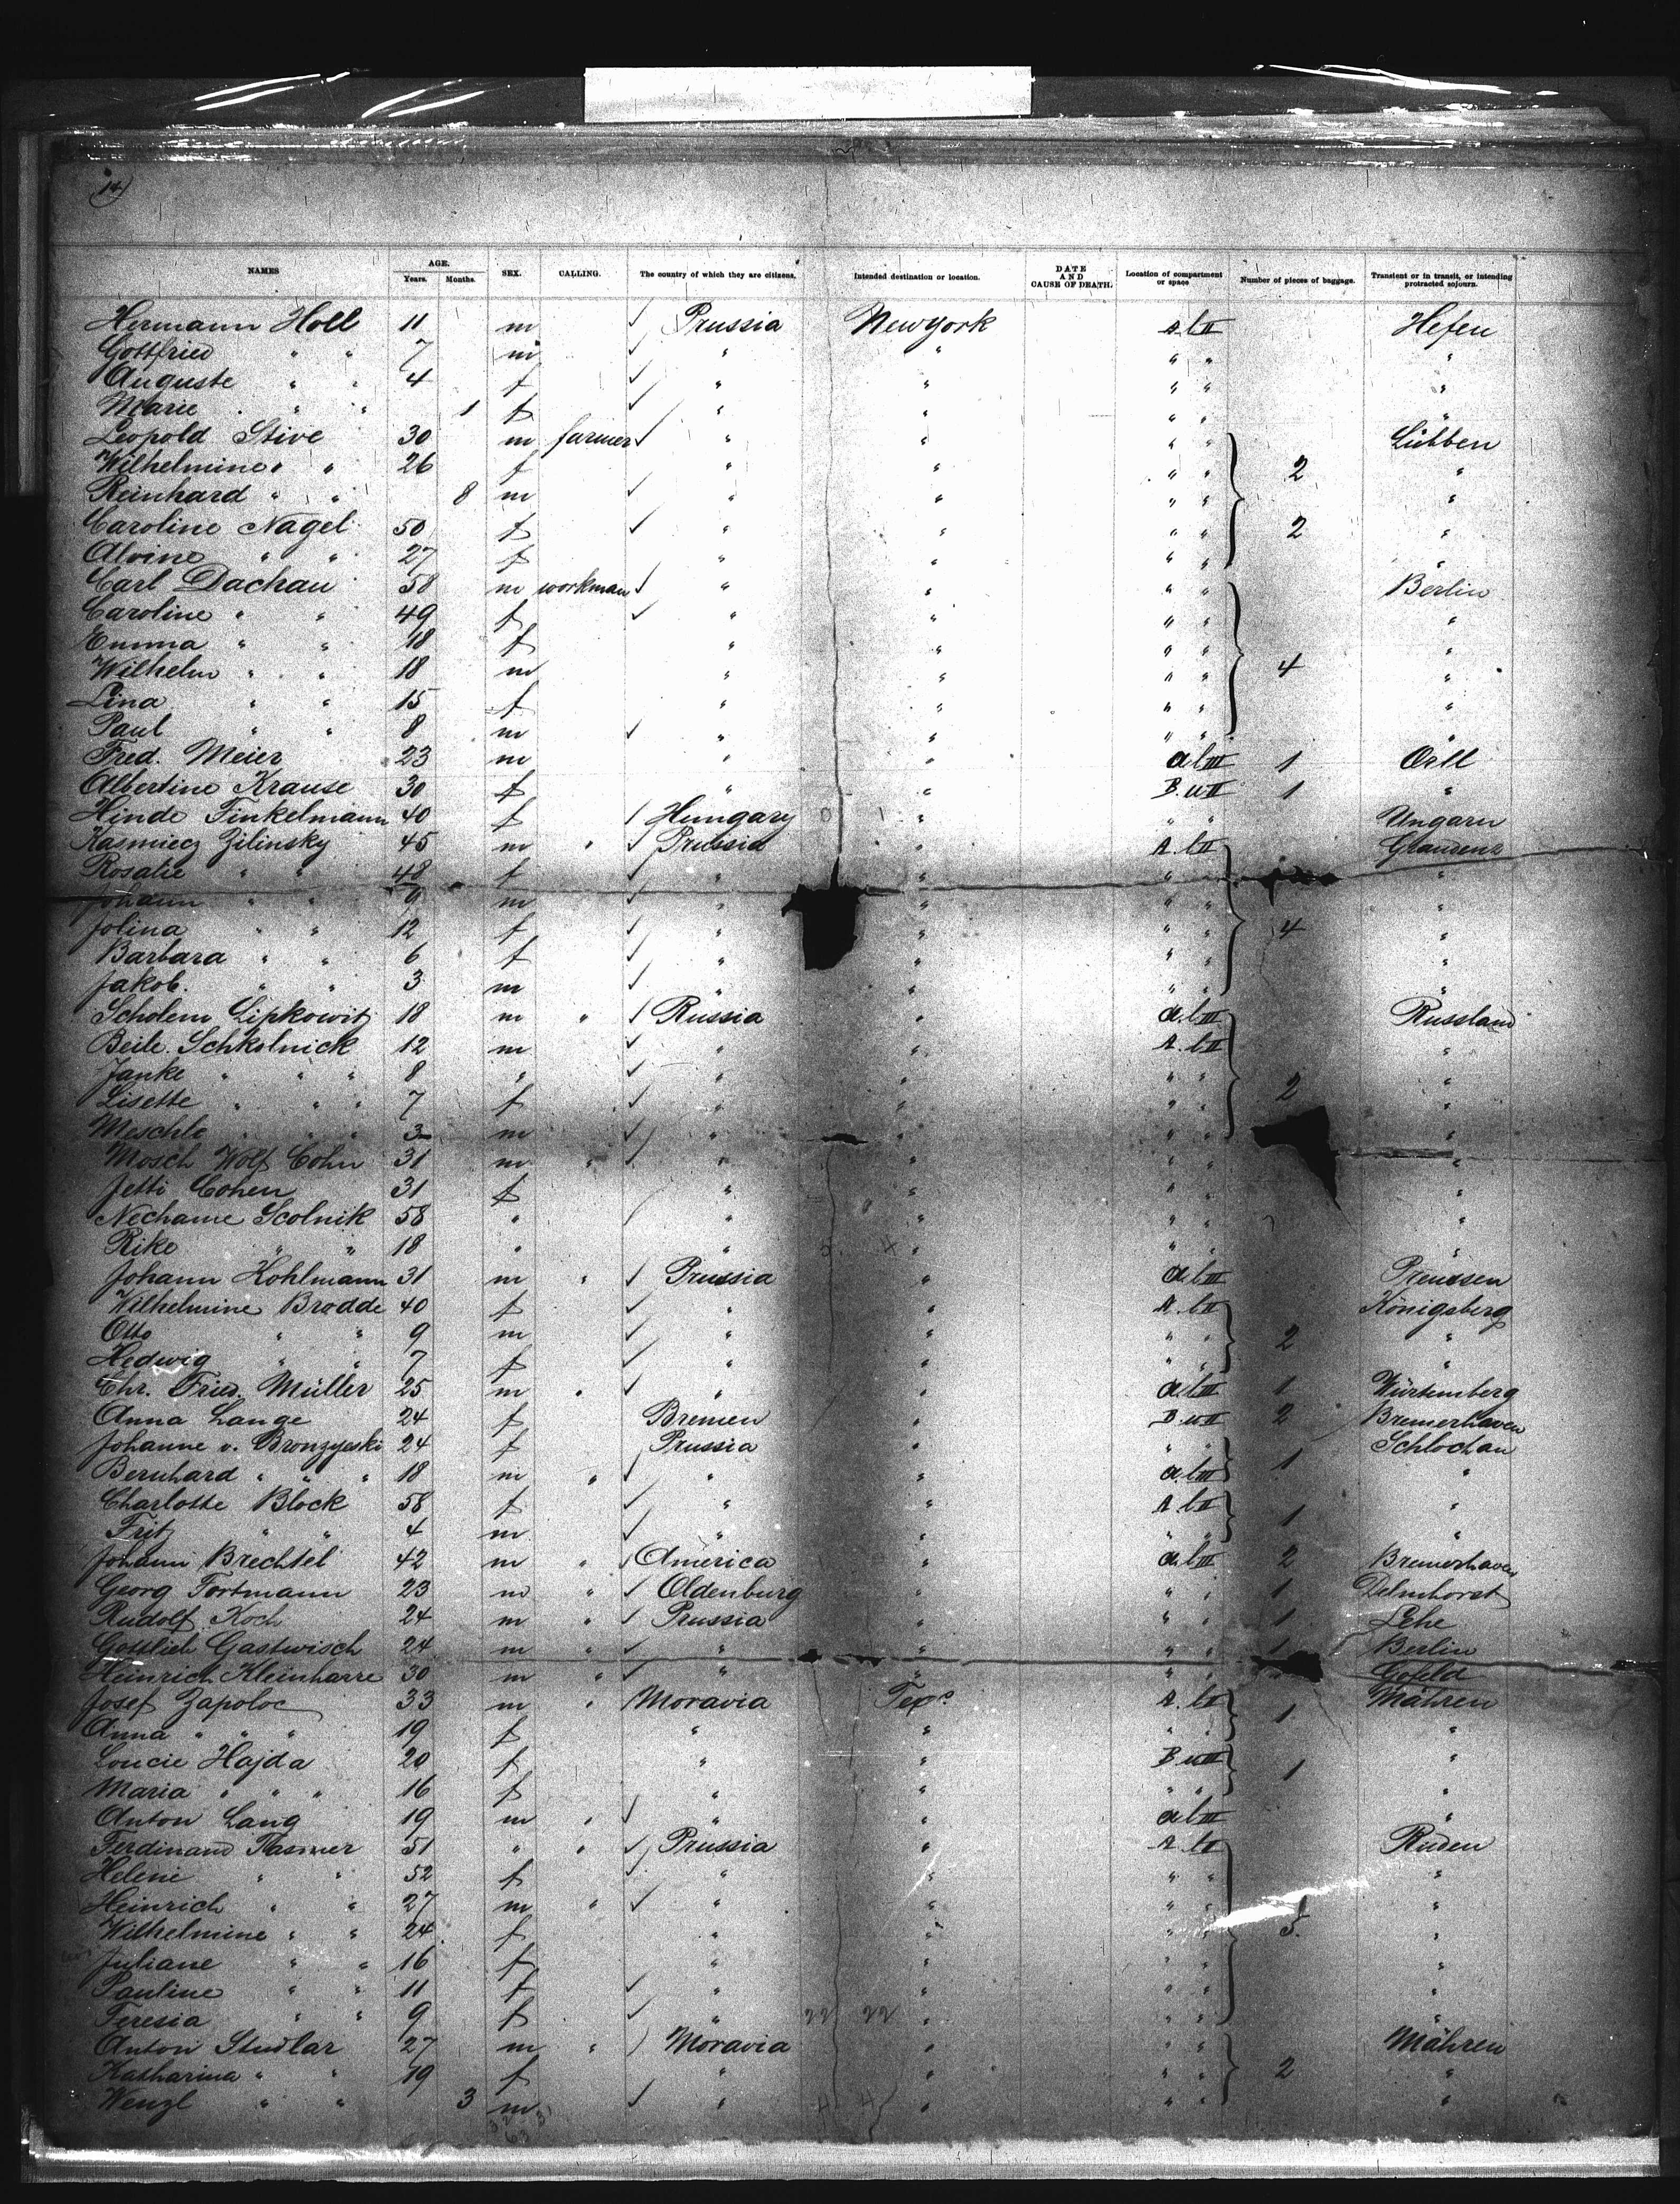 14
NAMES AGE. Years. Months. SEX. CALLING. The country of which they are citizens. Intended destination or location. DATE AND CAUSE OF DEATH. Location of compartment or space Number of pieces of baggage. Transient or in transit, or intending protracted sojourn.
Hermann Holl 11 m ✓ Prussia New York A. l II
Gottfried " " 7 m ✓ " " " " "
Auguste " " 4 f ✓ " " " " "
Marie " " 1 f ✓ " " " " "
Leopold Stive 30 m farmer ✓ " " " " Lübben
Wilhelmine " " 26 f " " " " 2 "
Reinhard " " 8 m ✓ " " " " "
Caroline Nagel 50 f ✓ " " " " 2 "
Alvine " " 27 f " " " " "
Carl Dachau 58 m workman ✓ " " " " Berlin
Caroline " " 49 f ✓ " " " " "
Emma " " 18 f " " " " "
Wilhelm " " 18 m " " " " 4 "
Lina " " 15 f " " " " "
Paul " " 8 m ✓ " " " " "
Fred. Meier 23 m " " a l III 1
Albertine Krause 30 f " " B. u II 1 "
Hinde Finkelmann 40 f / Hungary " " " Ungarn
Kasmiecz Zilinsky 45 m " ✓ Prussia " A. l II Graudenz
Rosalie " " 48 f ✓ " " " "
Johann " " 9 m ✓ " " " " "
Jolina " " 12 f ✓ " " " " 4 "
Barbara " " 6 f ✓ " " " " "
Jakob. " " 3 m ✓ " " " " "
Scholem Lipkowitz 18 m " / Russia " a l III Russland
Beile. Schkolnick 12 m ✓ " " A. l II "
Janke " " " 8 " ✓ " " " " "
Lisette " " " 7 f ✓ " " " " 2 "
Meschle " " " 3 m ✓ " " " " "
Mosch Wolf Cohn 31 m " ✓ " " " " "
Jetti Cohen 31 f " " " " "
Nechame Scolnik 58 " / " " " " "
Rike " " 18 " " " " " "
Johann Kohlmann 31 m " ✓ Prussia " a l III Preussen
Wilhelmine Brodde 40 f ✓ " " A. l II Königsberg
Otto " " 9 m ✓ " " " " 2 "
Hedwig " " 7 f ✓ " " " " "
Chr. Fried. Müller 25 m " ✓ " " a l III 1 Würtemberg
Anna Lange 24 f Bremen " B. u II 2 Bremerhaven
Johanne v. Bronzyeski 24 f Prussia " " " Schlochau
Bernhard " " " 18 m " ✓ " " a l III 1 "
Charlotte Block 58 f ✓ " " A. l II "
Fritz " " 4 m ✓ " " " " 1 "
Johann Brechtel 42 m " / America " a l III 2 Bremerhaven
Georg Fortmann 23 m " ✓ Oldenburg " " " 1 Delmhorst
Rudolf Koch 24 m " ✓ Prussia " " " 1 Lehe
Gottlieb Gastwisch 24 m " ✓ " " " " 1 Berlin
Heinrich Kleinharre 30 m " ✓ " " " " Gofeld
Josef Zapoloc 33 m " / Moravia A. l II Mähren
Anna " " " 19 f " " " " 1 "
Loucie Hajda 20 f " " B. u II "
Maria " " " 16 f " " " " 1 "
Anton Lang 19 m " ✓ " " a l III "
Ferdinand 51 " " ✓ Prussia " A. l II
Helene " " 52 f ✓ " " " " "
Heinrich " " 27 m " ✓ " " " " "
Wilhelmine " " 24 f " " " " 5. "
Juliane " " 16 f " " " " "
Pauline " " 11 f ✓ " " " " "
Teresia " " 9 f ✓ " 22 22 " " " "
Anton Studlar 27 m " / Moravia " " " Mähren
Katharina " " 19 f " " " " 2 "
Wenzl " " 3 m ✓ " " " " "